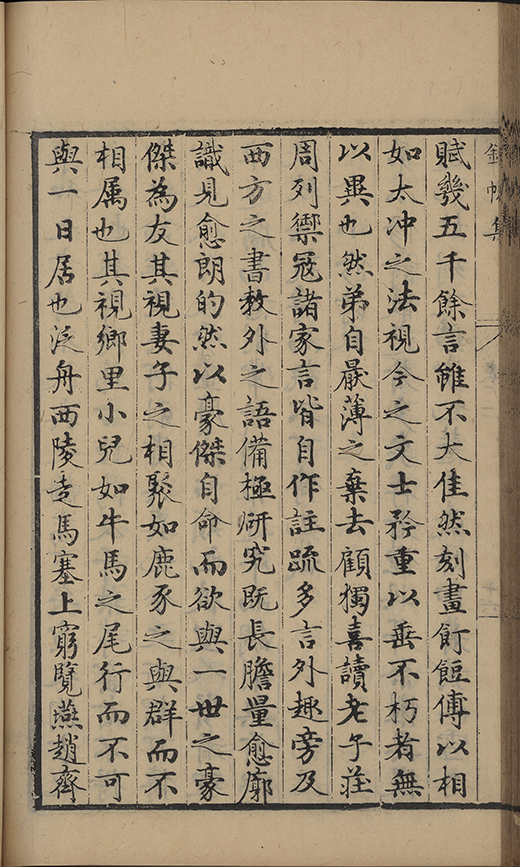 錦帆集
賦幾五千餘言雖不大佳然刻畫飣餖傅以相
如太冲之法視今之文士矜重以垂不朽者無
以異也然弟自厭薄之棄去顧獨喜讀老子莊
周列禦寇諸家言皆自作註疏多言外趣旁及
西方之書教外之語備極研究既長膽量愈廓
識見愈朗的然以豪傑自命而欲與一世之豪
傑為友其視妻子之相聚如鹿豕之與群而不
相属也其視鄉里小兒如牛馬之尾行而不可
與一日居也泛舟西陵走馬塞上窮覽燕趙齊